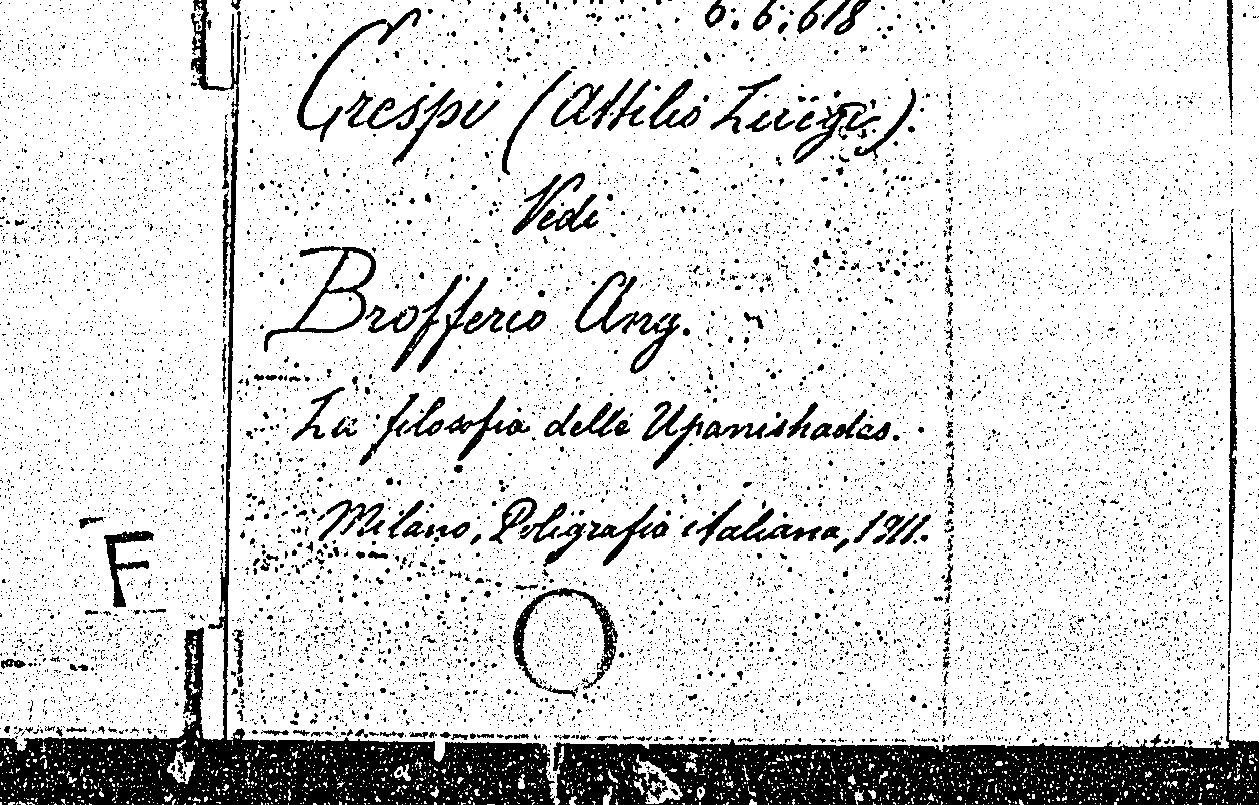 6. 6. 618
Crespi (Attilio Luigi).
Vedi
Brofferio Ang.
La filosofia delle Upanishadas.
Milano, Poligrafia italiana, 1911.
F